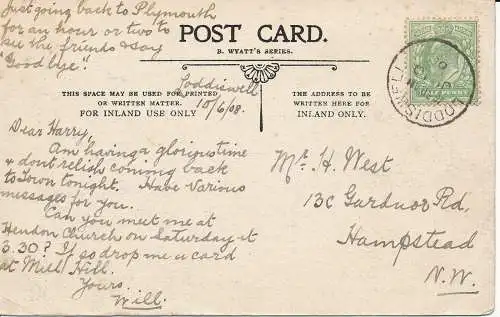 Just going back to Plymouth
for an hour or two to
see the friends & say
"Good bye".
POST CARD.
B. WYATT'S SERIES.
THIS SPACE MAY BE USED FOR PRINTED
OR WRITTEN MATTER.
FOR INLAND USE ONLY
THE ADDRESS TO BE
WRITTEN HERE FOR
INLAND ONLY.
Loddiswell
10/6/08.
Dear Harry,
Am having a glorious time
& dont relish coming back
to Town tonight. Have various
messages for you.
Can you meet me at
Hendon Church on Saturday at
3.30? If so drop me a card
at Mill Hill.
Yours.
Will.
Mr. H. West
13c Gardnor Rd,
Hampstead
N.W.
LODDISWELL
HALF PENNY